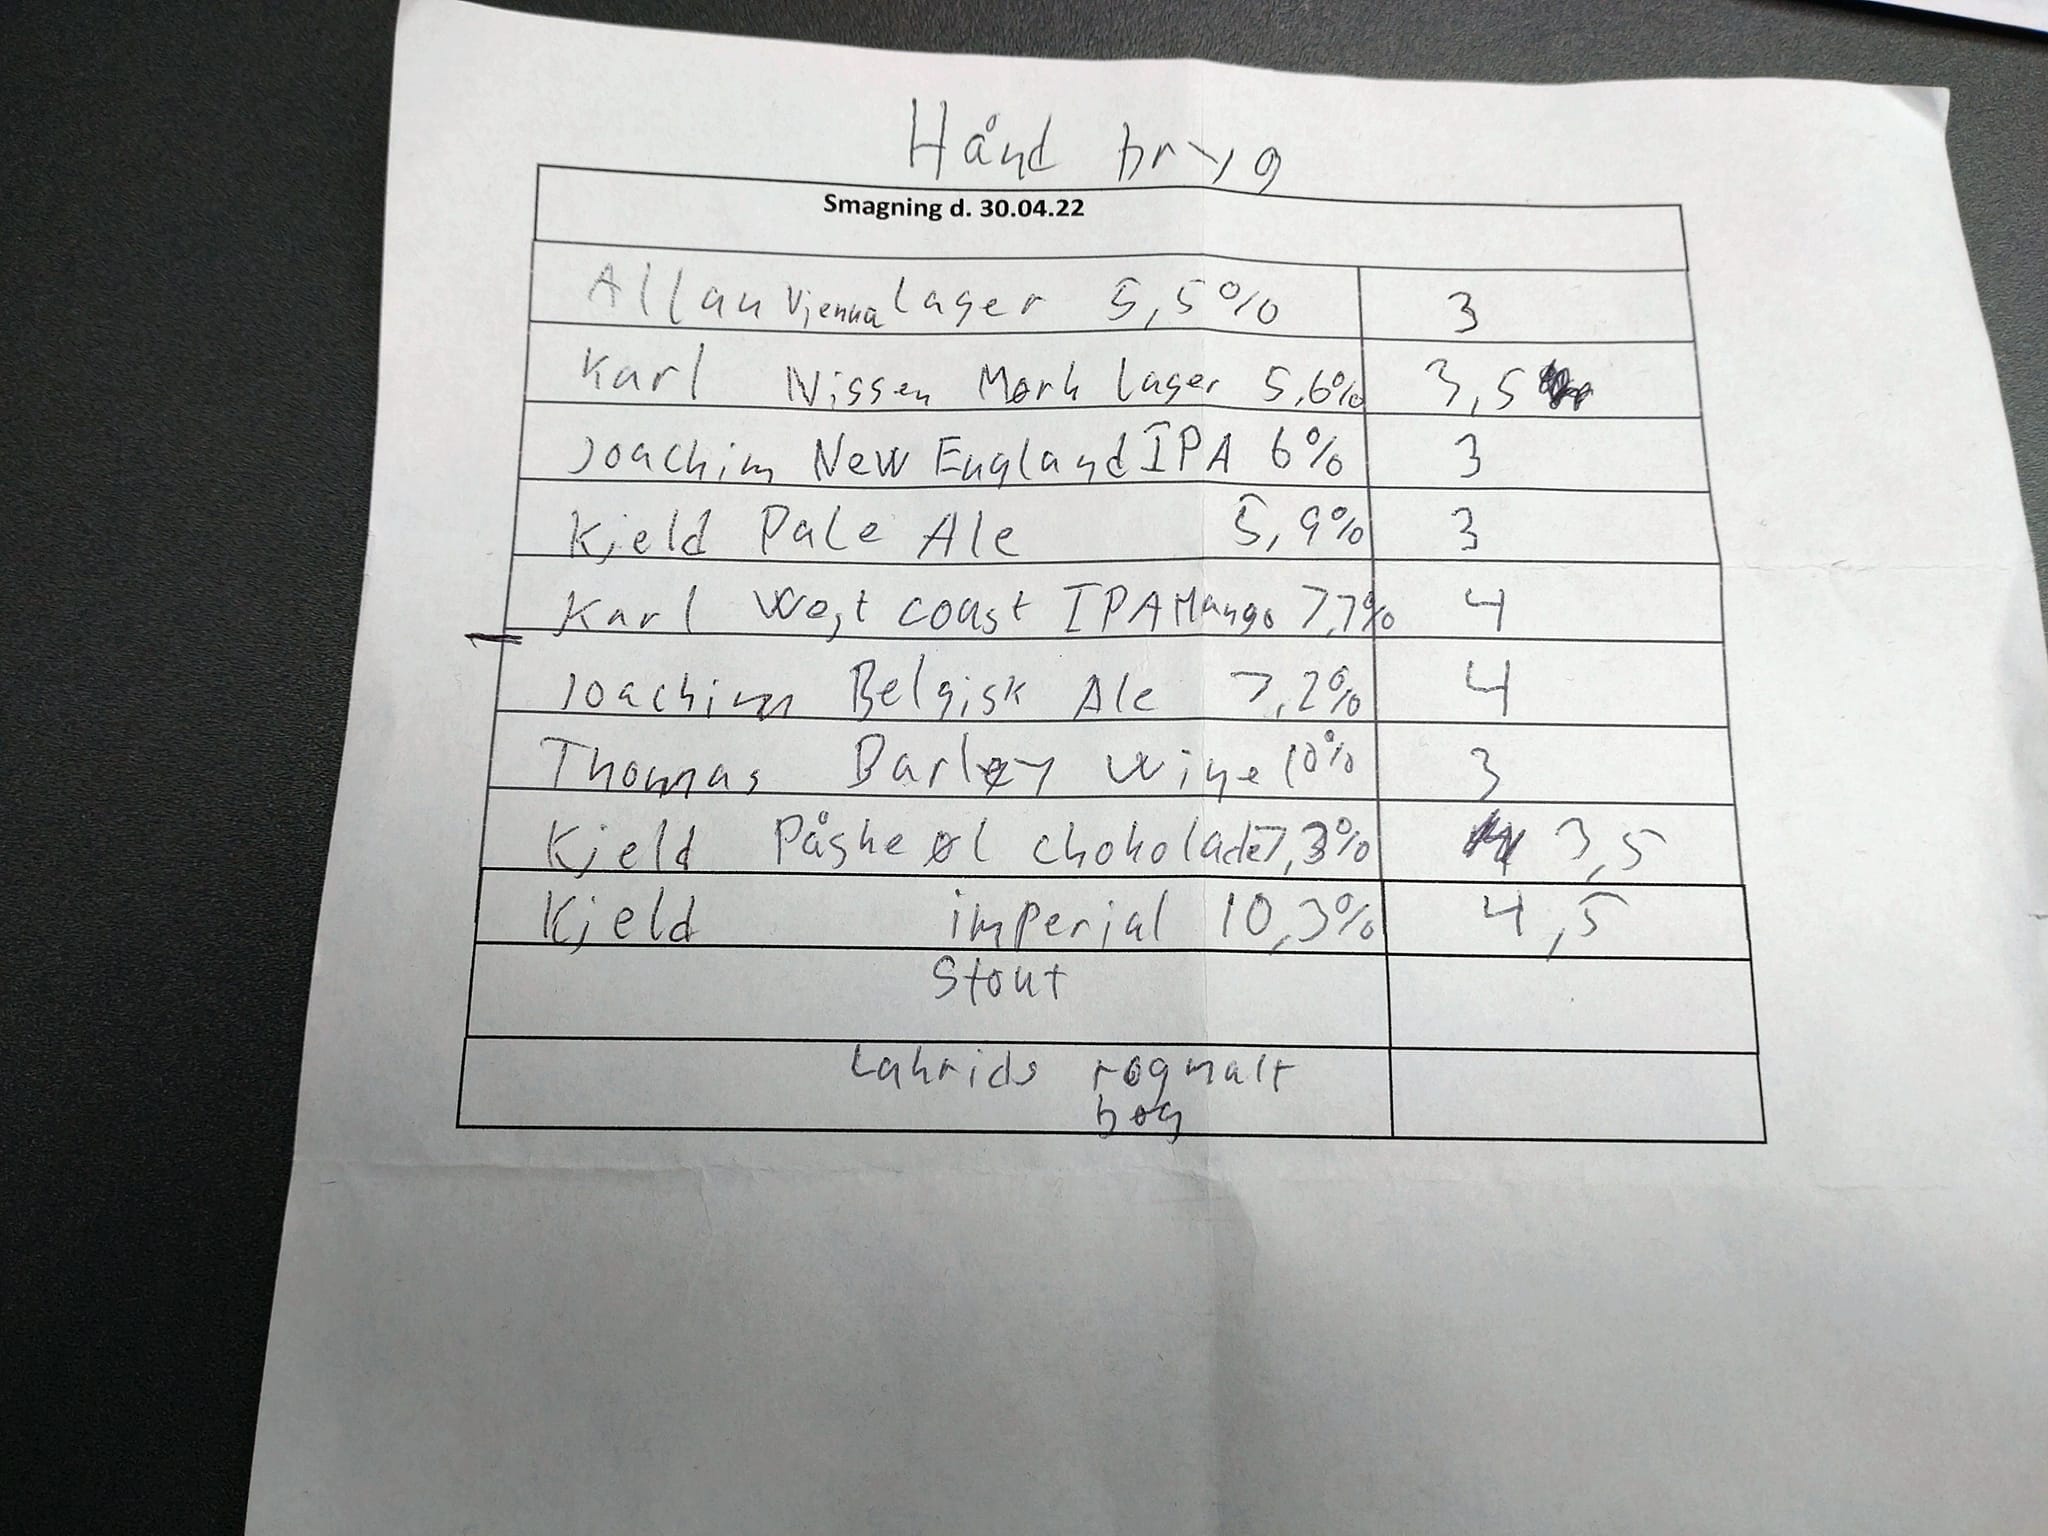 Hånd bryg
Smagning d. 30.04.22
Allan Vienna Lager 5,5% 3
Karl Nissen Mørk Lager 5,6% 3,5
Joachim New England IPA 6% 3
Kjeld Pale Ale 5,9% 3
Karl West coast IPA Mango 7,7% 4
Joachim Belgisk Ale 7,2% 4
Thomas Barley Wine 10% 3
Kjeld Påske øl chokolade 7,3% 3,5
Kjeld imperial 10,3% 4,5
Stout
Lakrids røgmalt
bøg